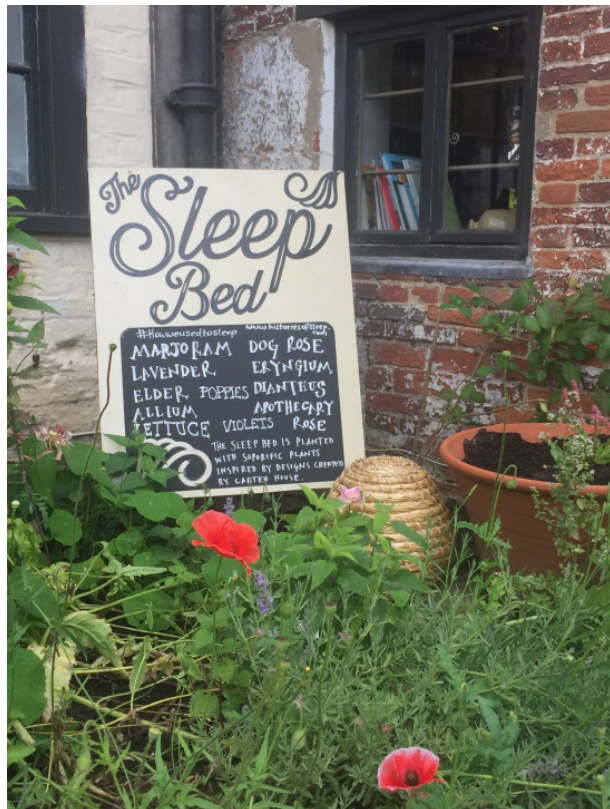 The
Sleep
Bed
#Howweusedtosleep www.historiesofsleep.com
MARJORAM DOG ROSE
LAVENDER ERYNGIUM
ELDER POPPIES DIANTHUS
ALLIUM APOTHECARY
LETTUCE VIOLETS ROSE
THE SLEEP BED IS PLANTED
WITH SOPORIFIC PLANTS
INSPIRED BY DESIGNS CREATED
BY CARTER HOUSE.